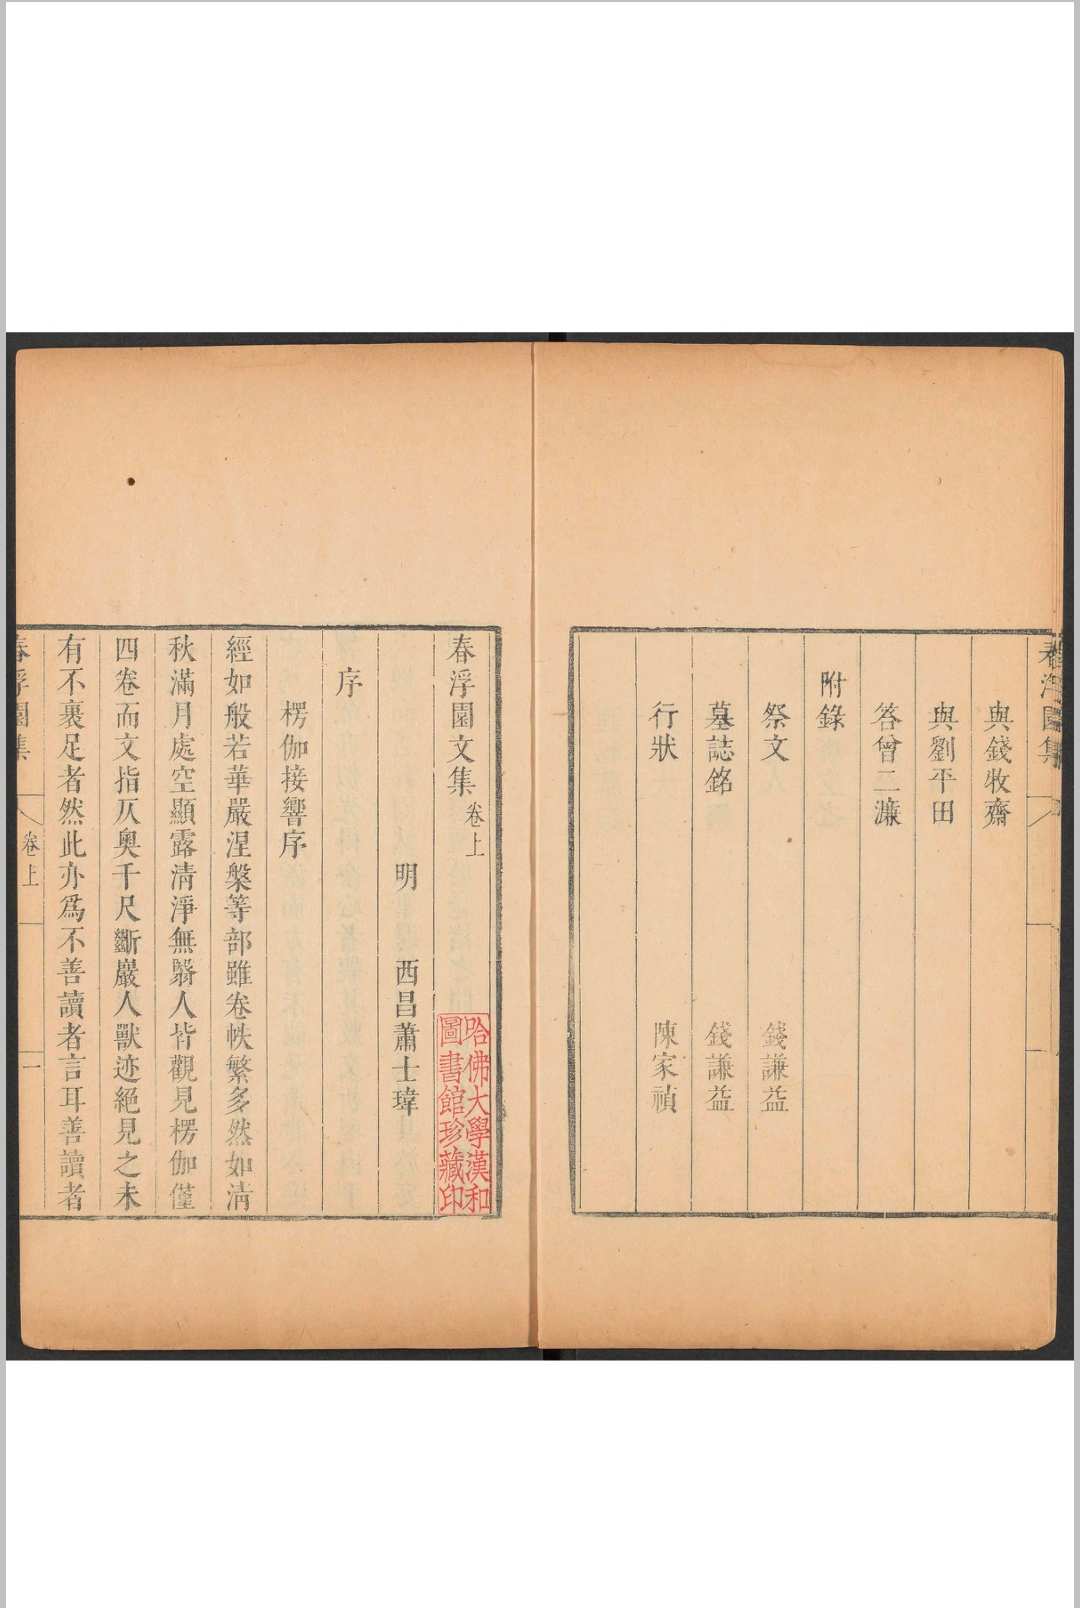 春浮園集
與錢牧齋
與劉平田
答曾二濂
附錄
祭文 錢謙益
墓誌銘 錢謙益
行狀 陳家禎
春浮園文集 卷上
哈佛大學漢和
圖書館珍藏印
明 西昌蕭士瑋
序
楞伽接響序
經如般若華嚴涅槃等部雖卷帙繁多然如淸
秋滿月處空顯露淸淨無翳人皆觀見楞伽僅
四卷而文指仄奧千尺斷巖人獸迹絕見之未
有不裹足者然此亦爲不善讀者言耳善讀者
春浮園集 卷上 一